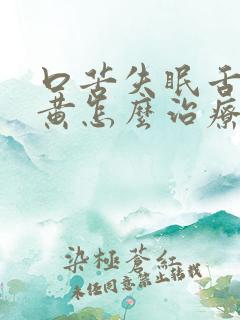 口苦失眠舌
黃怎麼治療
染極蒼紅
未经同意禁止转载